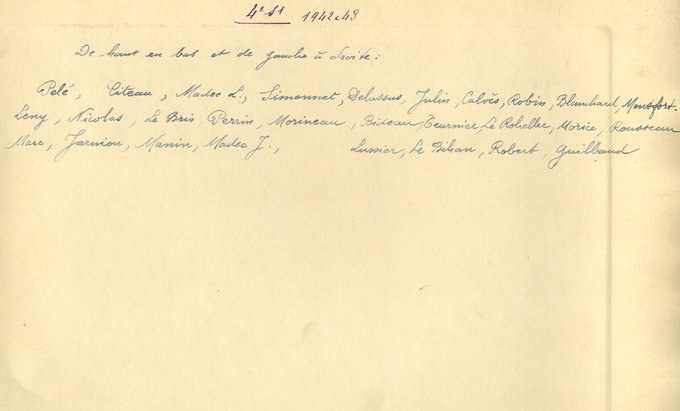 4e S1 1942-43
De haut en bas et de gauche à droite :
Pelé, Citeau, Madec L., Simonnet, Delassus, Julin, Calvès, Robin, Blanchard, Montfort.
Leny, Nicolas, Le Bris Perrin, Morineau, Bideau, Teurnier, Le Roheller, Morice, Rousseau
Marc, Jarniou, Manin, Madec J., Lussier, Le Bihan, Robert, Guilbaud